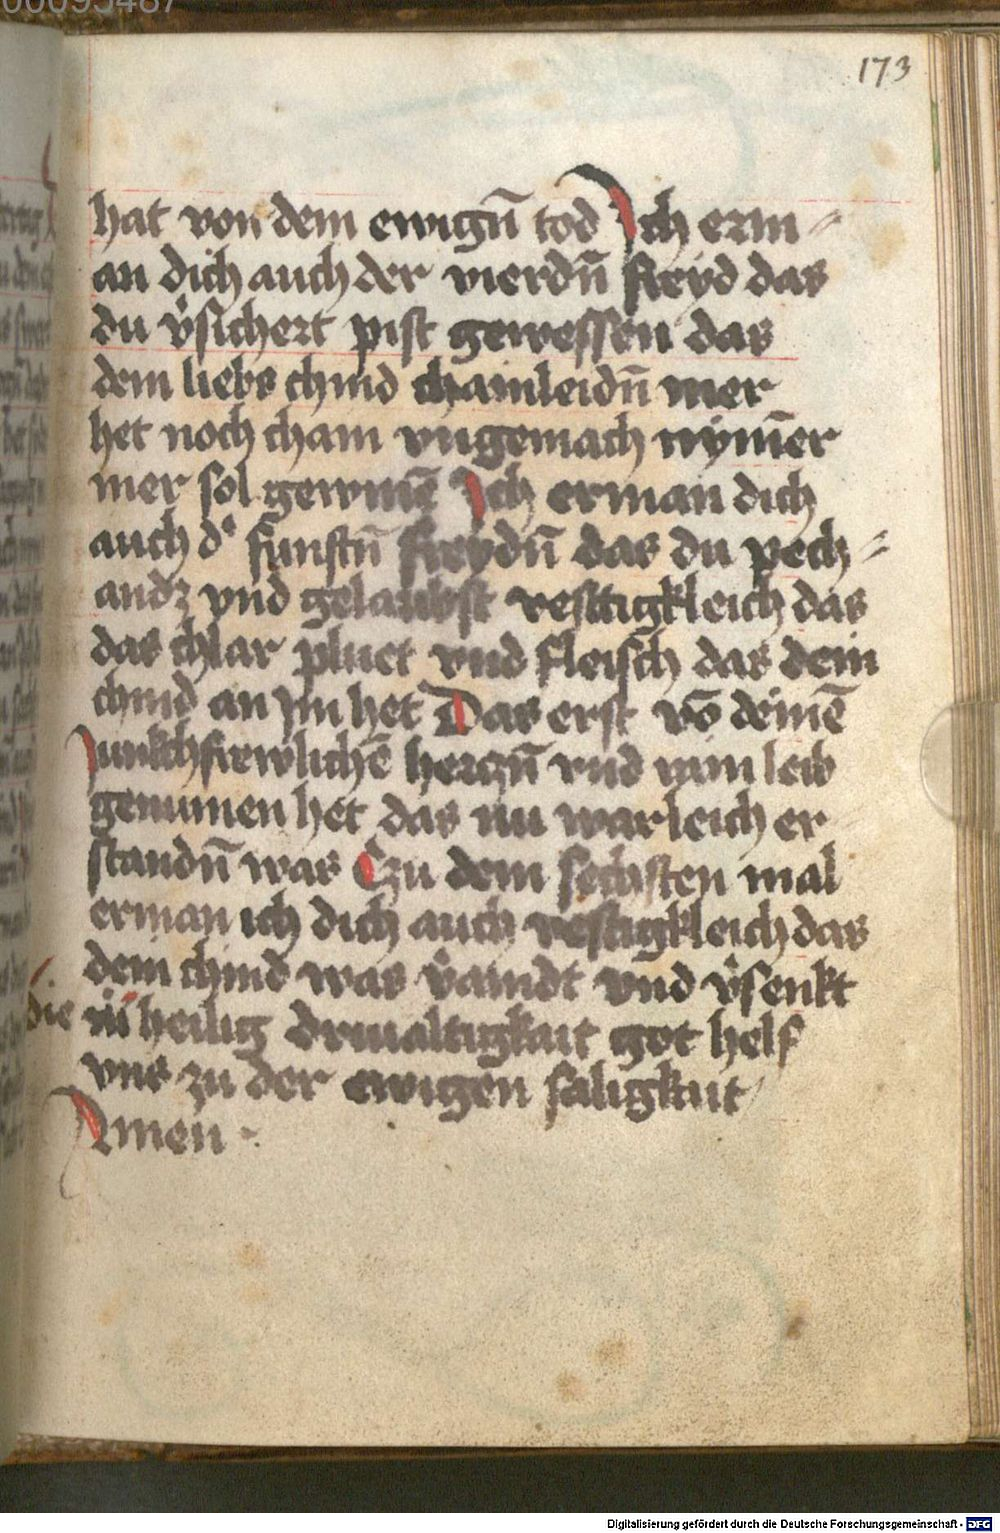 00095487
173
hat von dem ewigñ tod Ich erm⸗
an dich auch der vierdñ freyd das
du v̉sichert pist gewessen das
dem liebs chind chainleidñ mer
het noch cham vngemach nym̄er
mer sol gewinē Ich erman dich
auch dˀ funftñ freydñ das du pech⸗
andz vnd gelaubst vesttigkleich das
das chlar pluet vnd fleisch das dein
chind an Im het Das erst võ deinē
Junkchfrewlichē herczñ vnd leib
genumen het das nu warleich er
standñ was Czu dem sechsten mal
erman ich dich auch vestigkleich das
dein chind was v̉aindt vnd v̉senkt
die in heilig driualtigkait got helf
vns zu der ewigen saligkait
Amen
Digitalisierung gefördert durch die Deutsche Forschungsgemeinschaft - DFG